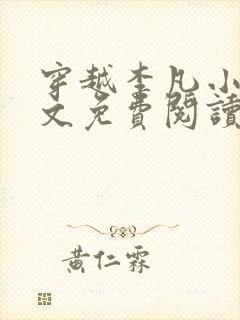 穿越李凡小
文免費閱讀
黃仁霖